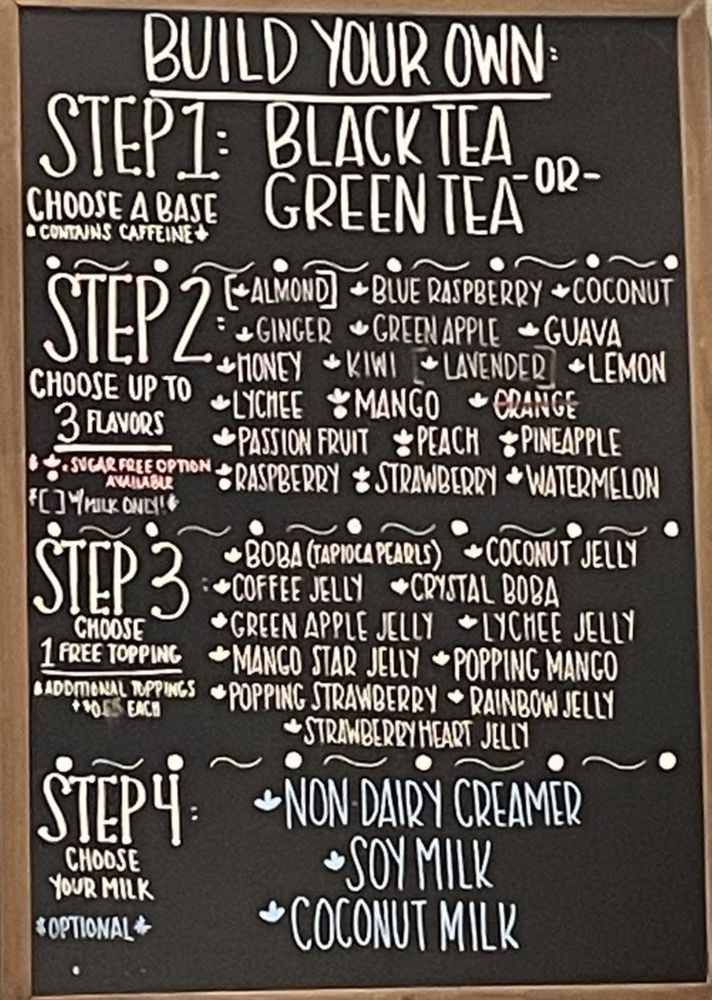 BUILD YOUR OWN:
STEP 1: BLACK TEA
-OR-
GREEN TEA
CHOOSE A BASE
CONTAINS CAFFEINE
STEP 2:
CHOOSE UP TO
3 FLAVORS
SUGAR FREE OPTION
AVAILABLE
*[ ] W/ MILK ONLY!*
[ALMOND] BLUE RASPBERRY COCONUT
GINGER GREEN APPLE GUAVA
HONEY KIWI [LAVENDER] LEMON
LYCHEE MANGO ORANGE
PASSION FRUIT PEACH PINEAPPLE
RASPBERRY STRAWBERRY WATERMELON
STEP 3:
CHOOSE
1 FREE TOPPING
ADDITIONAL TOPPINGS
EACH
BOBA (TAPIOCA PEARLS) COCONUT JELLY
COFFEE JELLY CRYSTAL BOBA
GREEN APPLE JELLY LYCHEE JELLY
MANGO STAR JELLY POPPING MANGO
POPPING STRAWBERRY RAINBOW JELLY
STRAWBERRY HEART JELLY
STEP 4:
CHOOSE
YOUR MILK
*OPTIONAL*
NON DAIRY CREAMER
SOY MILK
COCONUT MILK